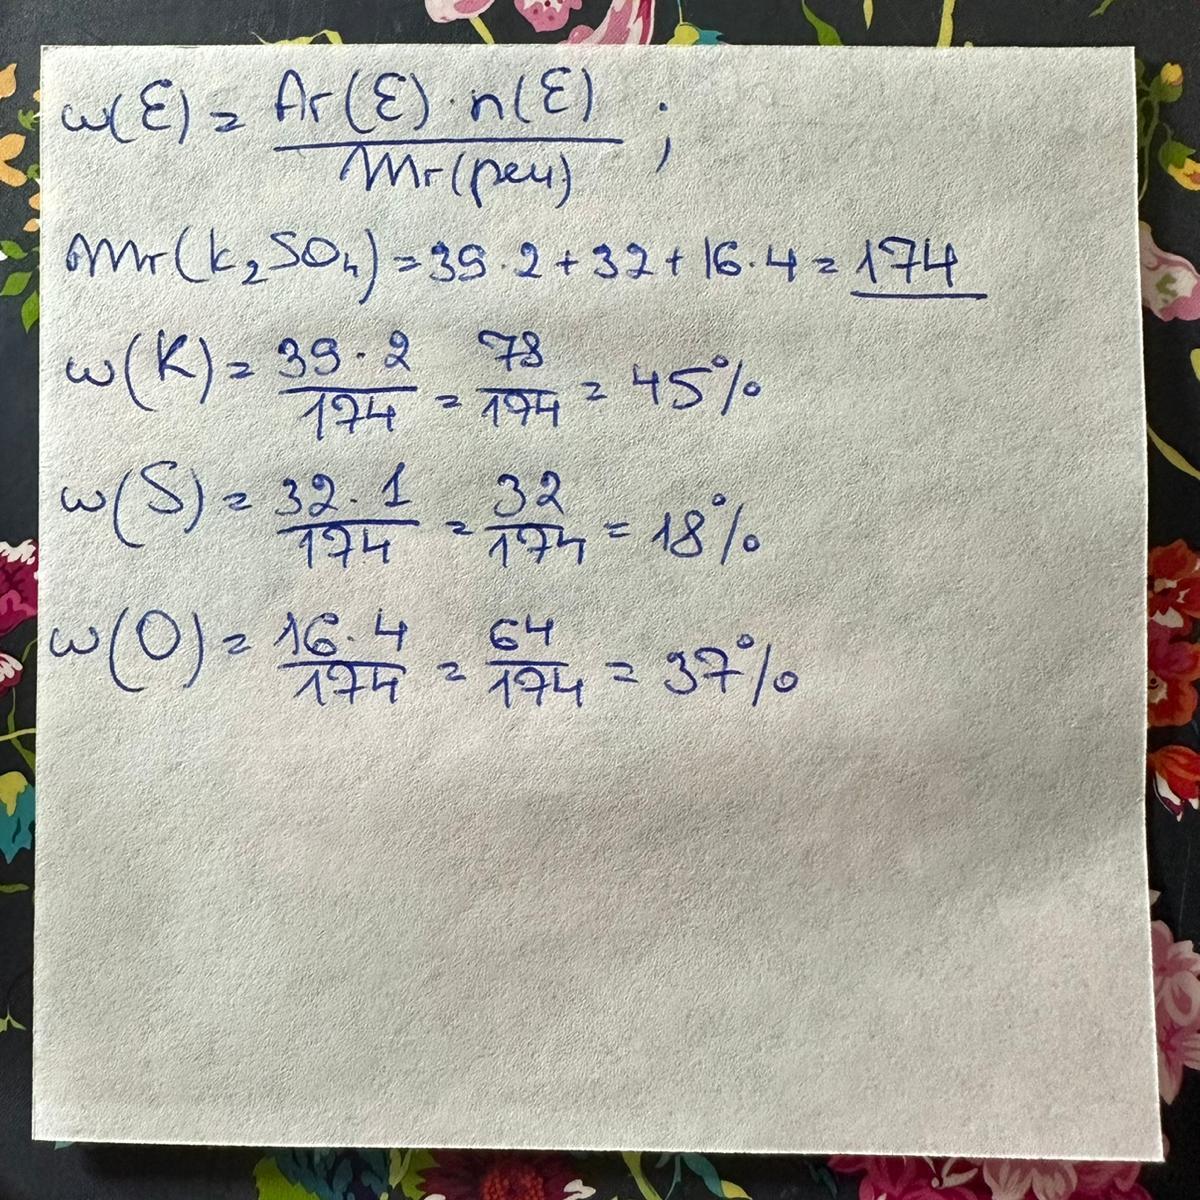 w(E) = Ar(E) · n(E) / Mr(реч) ;
Mr(K₂SO₄) = 39 · 2 + 32 + 16 · 4 = 174
w(K) = 39 · 2 / 174 = 78 / 174 = 45%
w(S) = 32 · 1 / 174 = 32 / 174 = 18%
w(O) = 16 · 4 / 174 = 64 / 174 = 37%